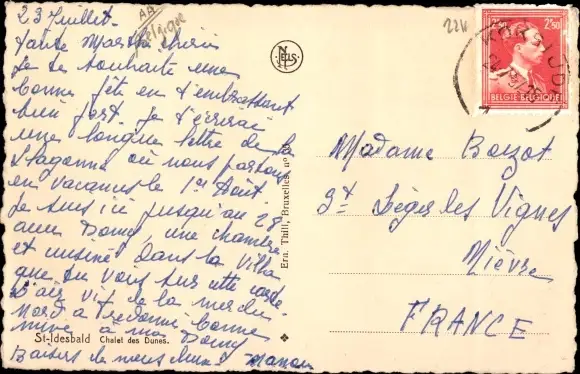 23 Juillet.
Tante Martha chérie
Je te souhaite une
bonne fête en t'embrassant
bien fort. Je t'écrirai
une longue lettre de la
où nous partons
en vacances le 1er Août.
Je suis ici jusqu'au 28
avec Domy, une chambre
et cuisine dans la villa
que tu vois sur cette carte.
L'air vif de la mer du
Nord a redonné bonne
mine à mon Domy
Baisers de nous deux. Manon
St-Idesbald Chalet des Dunes.
AA
Belgique
NELS
Ern. Thill, Bruxelles, no
2,50 2,50
BELGIE BELGIQUE
KOKSIJDE
Madame Boizot
St Léger les Vignes
Nièvre
FRANCE